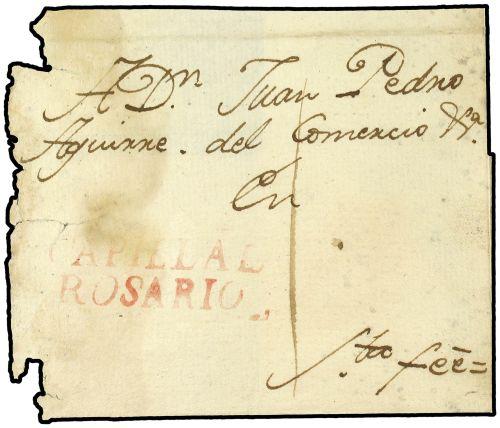 A Dn. Juan Pedro
Aguirre. del Comercio
En
CAPILLA L
ROSARIO
Sta fee=